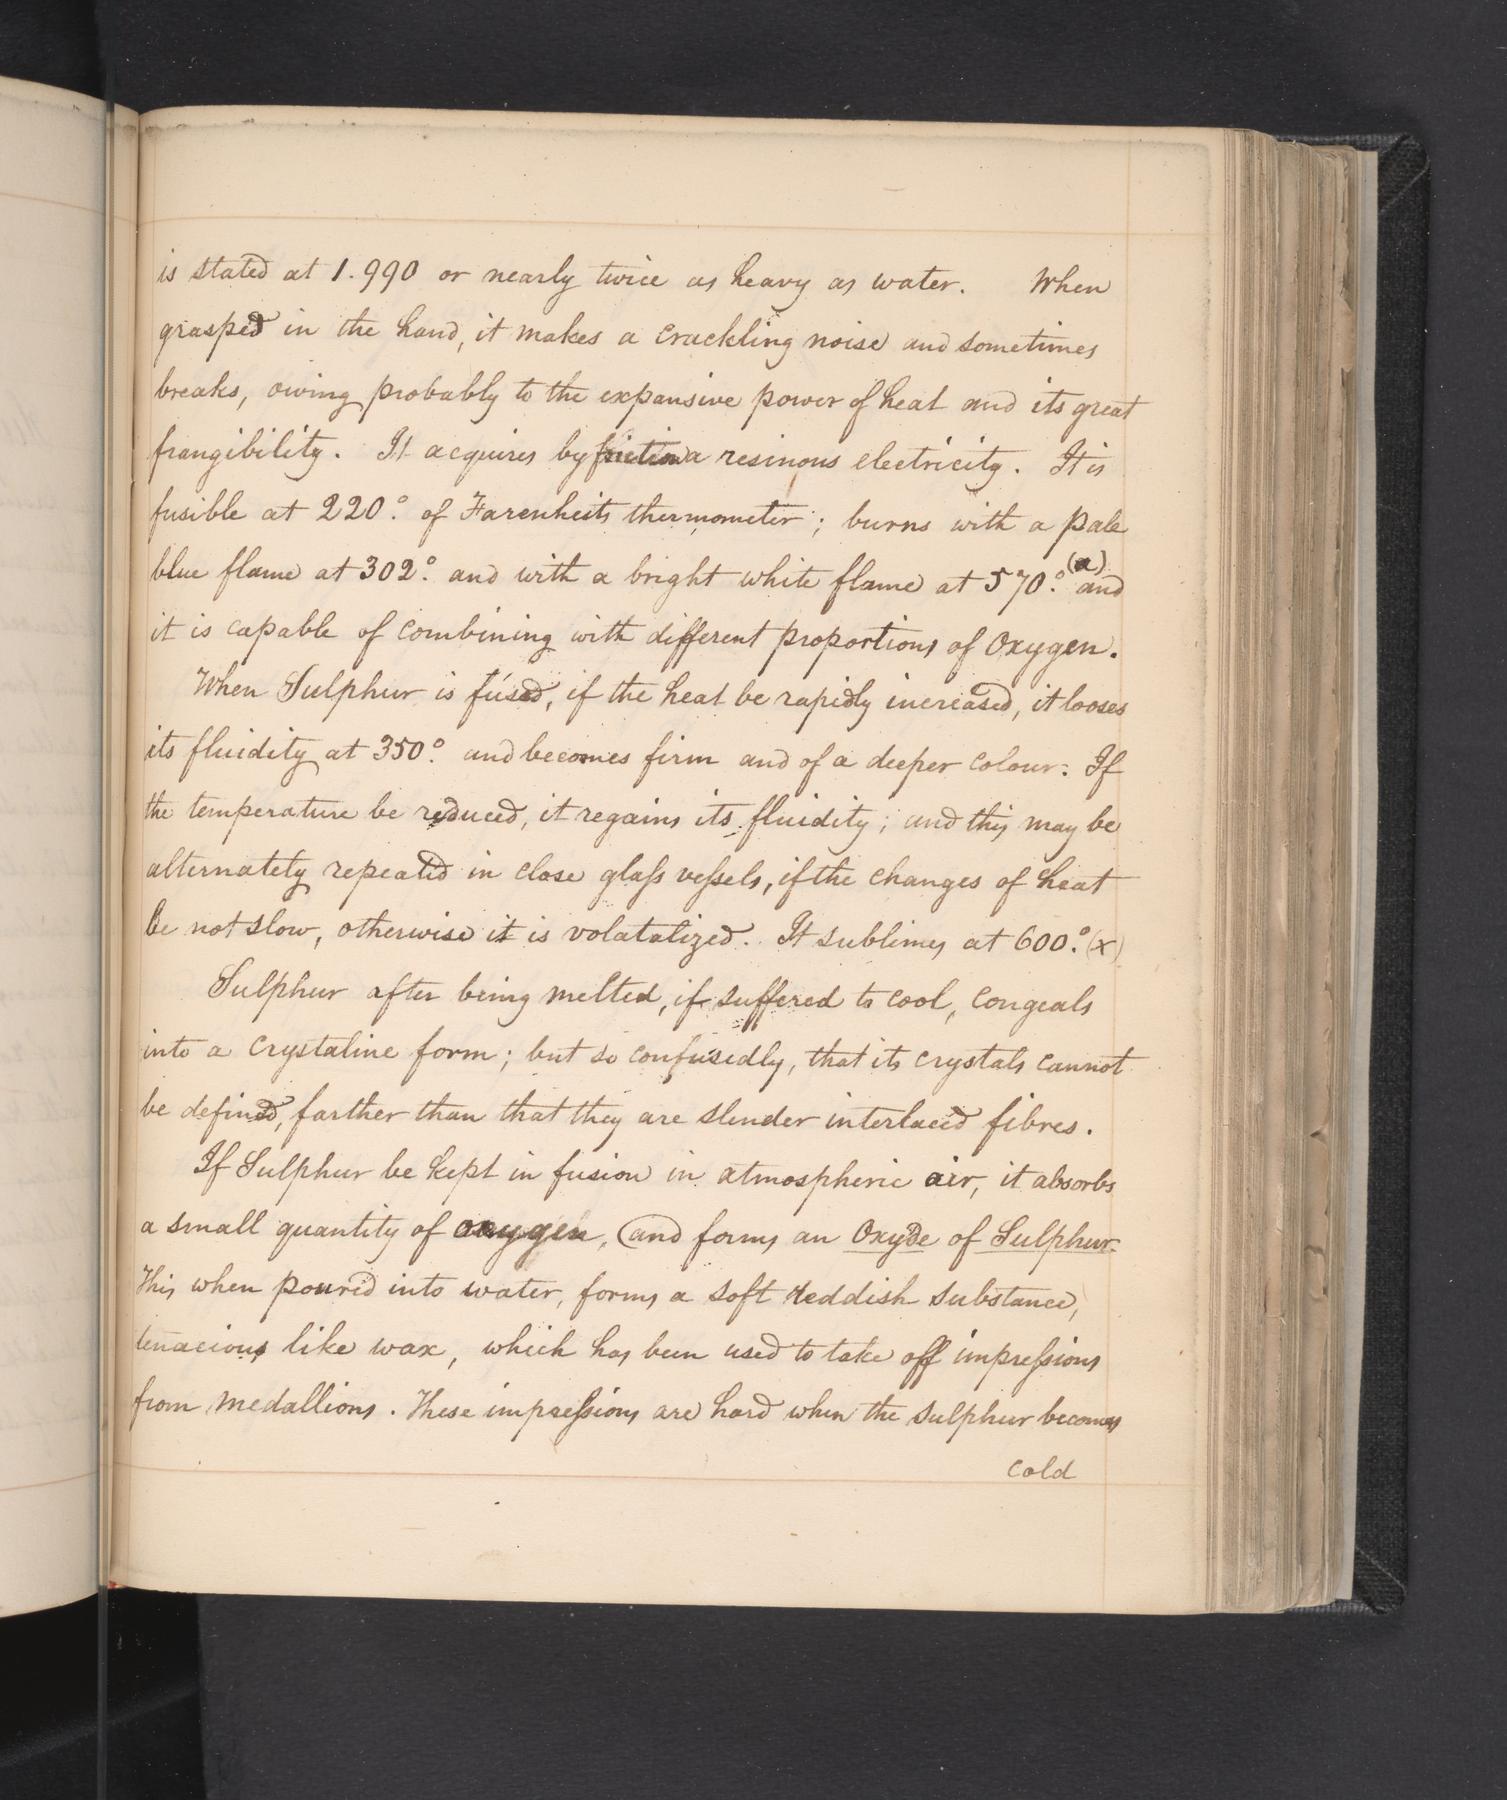 is stated at 1.990 or nearly twice as heavy as water. When
grasped in the hand, it makes a crackling noise and sometimes
breaks, owing probably to the expansive power of heat and its great
frangibility. It acquires by friction a resinous electricity. It is
fusible at 220°. of Farenheits thermometer; burns with a pale
blue flame at 302°. and with a bright white flame at 570°. (a) and
it is capable of combining with different proportions of Oxygen.
When Sulphur is fused, if the heat be rapidly increased, it looses
its fluidity at 350°. and becomes firm and of a deeper colour: If
the temperature be reduced, it regains its fluidity; and this may be
alternately repeated in close glaſs veſsels, if the changes of heat
be not slow, otherwise it is volatalized. It sublimes at 600°. (x)
Sulphur after being melted, if suffered to cool, congeals
into a crystaline form; but so confusedly, that its crystals cannot
be defined, farther than that they are slender interlaced fibres.
If Sulphur be kept in fusion in atmospheric air, it absorbs
a small quantity of oxygen, (and forms an Oxyde of Sulphur.
This when poured into water, forms a soft reddish substance,
tenacious like wax, which has been used to take off impreſsions
from medallions. These impreſsions are hard when the sulphur becomes
cold